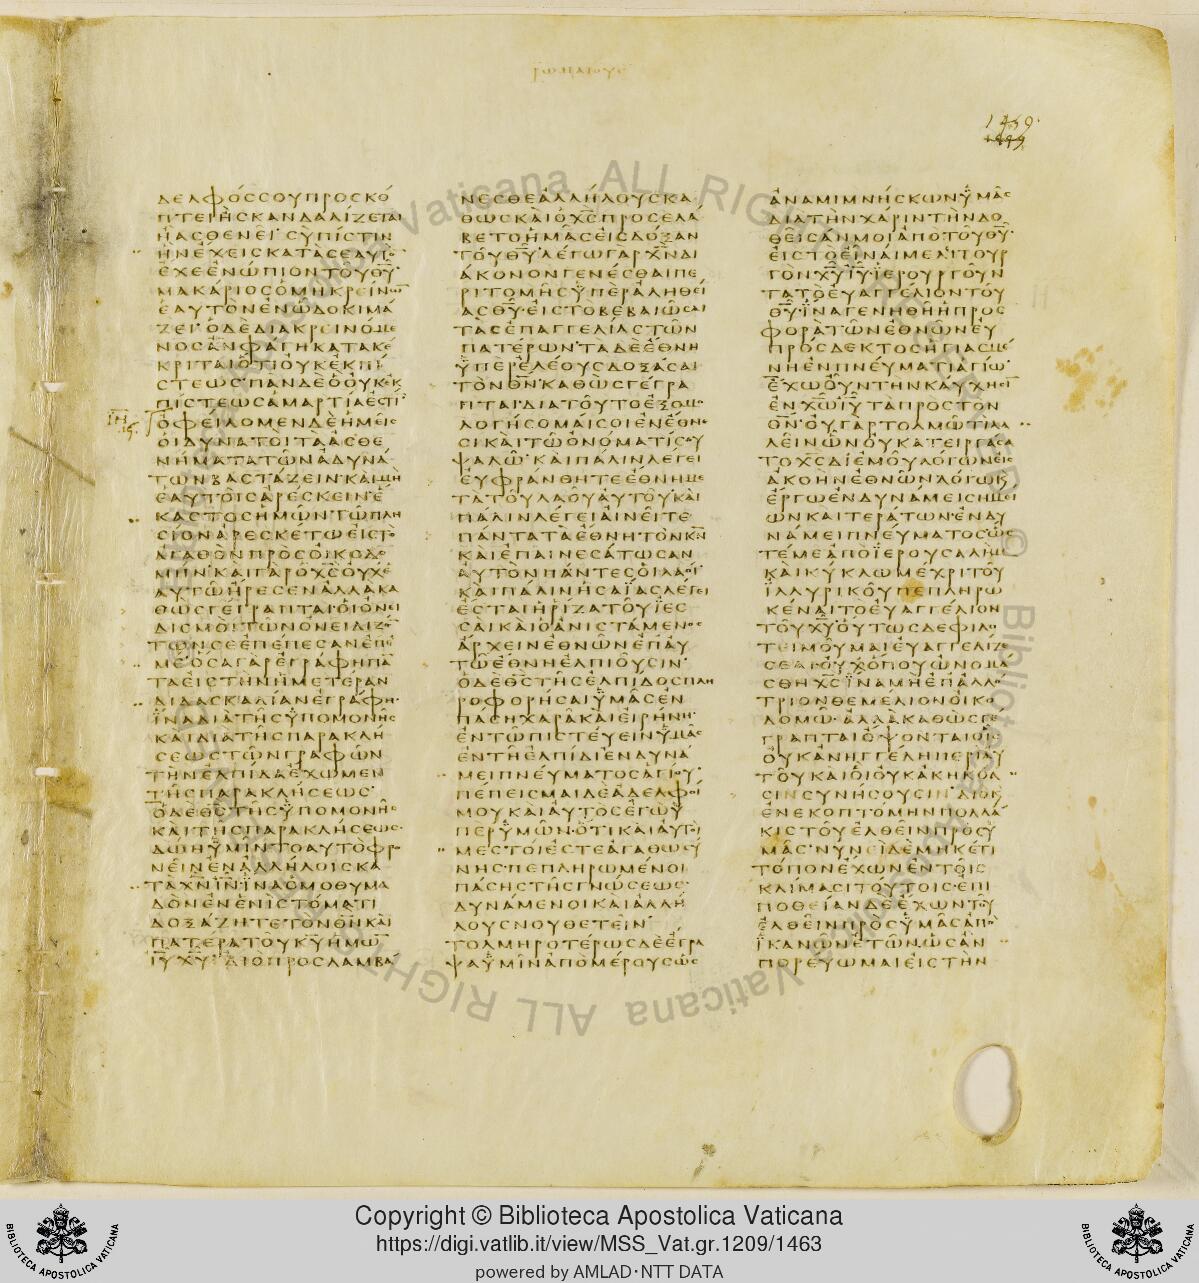 ΡΩΜΑΙΟΥΣ
1459
ΔΕΛΦΟΣΣΟΥΠΡΟΣΚΟ
ΠΤΕΙΗΣΚΑΝΔΑΛΙΖΕΤΑΙ
ΗΑΣΘΕΝΕΙ ΣΥΠΙΣΤΙΝ
ΗΝΕΧΕΙΣΚΑΤΑΣΕΑΥΤΟ
ΕΧΕΕΝΩΠΙΟΝΤΟΥΘΥ
ΜΑΚΑΡΙΟΣΟΜΗΚΡΕΙΝΩ
ΕΑΥΤΟΝΕΝΩΔΟΚΙΜΑ
ΖΕΙ ΟΔΕΔΙΑΚΡΕΙΝΟΜΕ
ΝΟΣΑΝΦΑΓΗΚΑΤΑΚΕ
ΚΡΙΤΑΙΟΤΙΟΥΚΕΚΠΙ
ΣΤΕΩΣ ΠΑΝΔΕΟΟΥΚΕΚ
ΠΙΣΤΕΩΣΑΜΑΡΤΙΑΕΣΤΙ
ΟΦΕΙΛΟΜΕΝΔΕΗΜΕΙΣ
ΟΙΔΥΝΑΤΟΙΤΑΑΣΘΕ
ΝΗΜΑΤΑΤΩΝΑΔΥΝΑ
ΤΩΝΒΑΣΤΑΖΕΙΝΚΑΙΜΗ
ΕΑΥΤΟΙΣΑΡΕΣΚΕΙΝ Ε
ΚΑΣΤΟΣΗΜΩΝ ΤΩΠΛΗ
ΣΙΟΝΑΡΕΣΚΕΤΩΕΙΣΤΟ
ΑΓΑΘΟΝΠΡΟΣΟΙΚΟΔΟ
ΜΗΝ ΚΑΙΓΑΡΟΧΣΟΥΧΕ
ΑΥΤΩΗΡΕΣΕΝΑΛΛΑΚΑ
ΘΩΣΓΕΓΡΑΠΤΑΙ ΟΙΟΝΕΙ
ΔΙΣΜΟΙΤΩΝΟΝΕΙΔΙΖΟ
ΤΩΝΣΕΕΠΕΠΕΣΑΝΕΠΕ
ΜΕ ΟΣΑΓΑΡΕΓΡΑΦΗΠΑ
ΤΑΕΙΣΤΗΝΗΜΕΤΕΡΑΝ
ΔΙΔΑΣΚΑΛΙΑΝΕΓΡΑΦΗ
ΙΝΑΔΙΑΤΗΣΥΠΟΜΟΝΗΣ
ΚΑΙΔΙΑΤΗΣΠΑΡΑΚΛΗ
ΣΕΩΣΤΩΝΓΡΑΦΩΝ
ΤΗΝΕΛΠΙΔΑΕΧΩΜΕΝ
ΤΗΣΠΑΡΑΚΛΗΣΕΩΣ
ΟΔΕΘΣΤΗΣΥΠΟΜΟΝΗΣ
ΚΑΙΤΗΣΠΑΡΑΚΛΗΣΕΩΣ
ΔΩΗΥΜΙΝΤΟΑΥΤΟΦΡΟ
ΝΕΙΝΕΝΑΛΛΗΛΟΙΣΚΑ
ΤΑΧΝΙΝ ΙΝΑΟΜΟΘΥΜΑ
ΔΟΝΕΝΕΝΙΣΤΟΜΑΤΙ
ΔΟΞΑΖΗΤΕΤΟΝΘΝΚΑΙ
ΠΑΤΕΡΑΤΟΥΚΥΗΜΩ
ΙΥΧΥ ΔΙΟΠΡΟΣΛΑΜΒΑ
ΝΕΣΘΕΑΛΛΗΛΟΥΣΚΑ
ΘΩΣΚΑΙΟΧΣΠΡΟΣΕΛΑ
ΒΕΤΟΗΜΑΣΕΙΣΔΟΞΑΝ
ΤΟΥΘΥ ΛΕΓΩΓΑΡΧΝΔΙ
ΑΚΟΝΟΝΓΕΝΕΣΘΑΙΠΕ
ΡΙΤΟΜΗΣΥΠΕΡΑΛΗΘΕΙ
ΑΣΘΥΕΙΣΤΟΒΕΒΑΙΩΣΑΙ
ΤΑΣΕΠΑΓΓΕΛΙΑΣΤΩΝ
ΠΑΤΕΡΩΝ ΤΑΔΕΕΘΝΗ
ΥΠΕΡΕΛΕΟΥΣΔΟΞΑΣΑΙ
ΤΟΝΘΝ ΚΑΘΩΣΓΕΓΡΑ
ΠΤΑΙ ΔΙΑΤΟΥΤΟΕΞΟΜΟ
ΛΟΓΗΣΟΜΑΙΣΟΙΕΝΕΘΝΕ
ΣΙΚΑΙΤΩΟΝΟΜΑΤΙΣΟΥ
ΨΑΛΩ ΚΑΙΠΑΛΙΝΛΕΓΕΙ
ΕΥΦΡΑΝΘΗΤΕΕΘΝΗΜΕ
ΤΑΤΟΥΛΑΟΥΑΥΤΟΥ ΚΑΙ
ΠΑΛΙΝΛΕΓΕΙΑΙΝΕΙΤΕ
ΠΑΝΤΑΤΑΕΘΝΗ ΤΟΝΚΝ
ΚΑΙΕΠΑΙΝΕΣΑΤΩΣΑΝ
ΑΥΤΟΝΠΑΝΤΕΣΟΙΛΑΟΙ
ΚΑΙΠΑΛΙΝΗΣΑΙΑΣΛΕΓΕΙ
ΕΣΤΑΙΗΡΙΖΑΤΟΥΙΕΣ
ΣΑΙΚΑΙΟΑΝΙΣΤΑΜΕΝΟΣ
ΑΡΧΕΙΝΕΘΝΩΝΕΠΑΥ
ΤΩΕΘΝΗΕΛΠΙΟΥΣΙΝ
ΟΔΕΘΣΤΗΣΕΛΠΙΔΟΣΠΛΗ
ΡΟΦΟΡΗΣΑΙΥΜΑΣΕΝ
ΠΑΣΗΧΑΡΑΚΑΙΕΙΡΗΝΗ
ΕΝΤΩΠΙΣΤΕΥΕΙΝΥΜΑΣ
ΕΝΤΗΕΛΠΙΔΙΕΝΔΥΝΑ
ΜΕΙΠΝΕΥΜΑΤΟΣΑΓΙΟΥ
ΠΕΠΕΙΣΜΑΙΔΕΑΔΕΛΦΟΙ
ΜΟΥΚΑΙΑΥΤΟΣΕΓΩΥ
ΠΕΡΥΜΩΝ ΟΤΙΚΑΙΑΥΤΟΙ
ΜΕΣΤΟΙΕΣΤΕΑΓΑΘΩΣΥ
ΝΗΣΠΕΠΛΗΡΩΜΕΝΟΙ
ΠΑΣΗΣΤΗΣΓΝΩΣΕΩΣ
ΔΥΝΑΜΕΝΟΙΚΑΙΑΛΛΗ
ΛΟΥΣΝΟΥΘΕΤΕΙΝ
ΤΟΛΜΗΡΟΤΕΡΩΣΔΕΕΓΡΑ
ΨΑΥΜΙΝΑΠΟΜΕΡΟΥΣΩΣ
ΑΝΑΜΙΜΝΗΣΚΩΝΥΜΑΣ
ΔΙΑΤΗΝΧΑΡΙΝΤΗΝΔΟ
ΘΕΙΣΑΝΜΟΙΑΠΟΤΟΥΘΥ
ΕΙΣΤΟΕΙΝΑΙΜΕΛΙΤΟΥΡ
ΓΟΝΧΥΙΥΙΕΡΟΥΡΓΟΥΝ
ΤΑΤΟΕΥΑΓΓΕΛΙΟΝΤΟΥ
ΘΥ ΙΝΑΓΕΝΗΘΗΗΠΡΟΣ
ΦΟΡΑΤΩΝΕΘΝΩΝΕΥ
ΠΡΟΣΔΕΚΤΟΣΗΓΙΑΣΜΕ
ΝΗΕΝΠΝΕΥΜΑΤΙΑΓΙΩ
ΕΧΩΟΥΝΤΗΝΚΑΥΧΗΣΙ
ΕΝΧΩΙΥΤΑΠΡΟΣΤΟΝ
ΘΝ ΟΥΓΑΡΤΟΛΜΩΤΙΛΑ
ΛΕΙΝΩΝΟΥΚΑΤΕΙΡΓΑΣΑ
ΤΟΧΣΔΙΕΜΟΥΛΟΓΩΝΕΙΣ
ΑΚΟΗΝΕΘΝΩΝΛΟΓΩΚΑΙ
ΕΡΓΩΕΝΔΥΝΑΜΕΙΣΗΜΕΙ
ΩΝΚΑΙΤΕΡΑΤΩΝ ΕΝΔΥ
ΝΑΜΕΙΠΝΕΥΜΑΤΟΣΩΣ
ΤΕΜΕΑΠΟΙΕΡΟΥΣΑΛΗΜ
ΚΑΙΚΥΚΛΩΜΕΧΡΙΤΟΥ
ΙΛΛΥΡΙΚΟΥΠΕΠΛΗΡΩ
ΚΕΝΑΙΤΟΕΥΑΓΓΕΛΙΟΝ
ΤΟΥΧΥ ΟΥΤΩΣΔΕΦΙΛΟ
ΤΕΙΜΟΥΜΑΙΕΥΑΓΓΕΛΙΖΕ
ΣΘΑΙ ΟΥΧΟΠΟΥΩΝΟΜΑ
ΣΘΗΧΣΙΝΑΜΗΕΠΑΛΛΟ
ΤΡΙΟΝΘΕΜΕΛΙΟΝΟΙΚΟ
ΔΟΜΩ ΑΛΛΑΚΑΘΩΣΓΕ
ΓΡΑΠΤΑΙΟΨΟΝΤΑΙΟΙΣ
ΟΥΚΑΝΗΓΓΕΛΗΠΕΡΙΑΥ
ΤΟΥΚΑΙΟΙΟΥΚΑΚΗΚΟΑ
ΣΙΝΣΥΝΗΣΟΥΣΙΝ ΔΙΟΚ
ΕΝΕΚΟΠΤΟΜΗΝΠΟΛΛΑ
ΚΙΣΤΟΥΕΛΘΕΙΝΠΡΟΣΥ
ΜΑΣ ΝΥΝΕΙΔΕΜΗΚΕΤΙ
ΤΟΠΟΝΕΧΩΝΕΝΤΟΙΣ
ΚΛΙΜΑΣΙΤΟΥΤΟΙΣΕΠΙ
ΠΟΘΕΙΑΝΔΕΕΧΩΝΤΟΥ
ΕΛΘΕΙΝΠΡΟΣΥΜΑΣΑΠΟ
ΙΚΑΝΩΝΕΤΩΝ ΩΣΑΝ
ΠΟΡΕΥΩΜΑΙΕΙΣΤΗΝ
Copyright © Biblioteca Apostolica Vaticana
https://digi.vatlib.it/view/MSS_Vat.gr.1209/1463
powered by AMLAD·NTT DATA